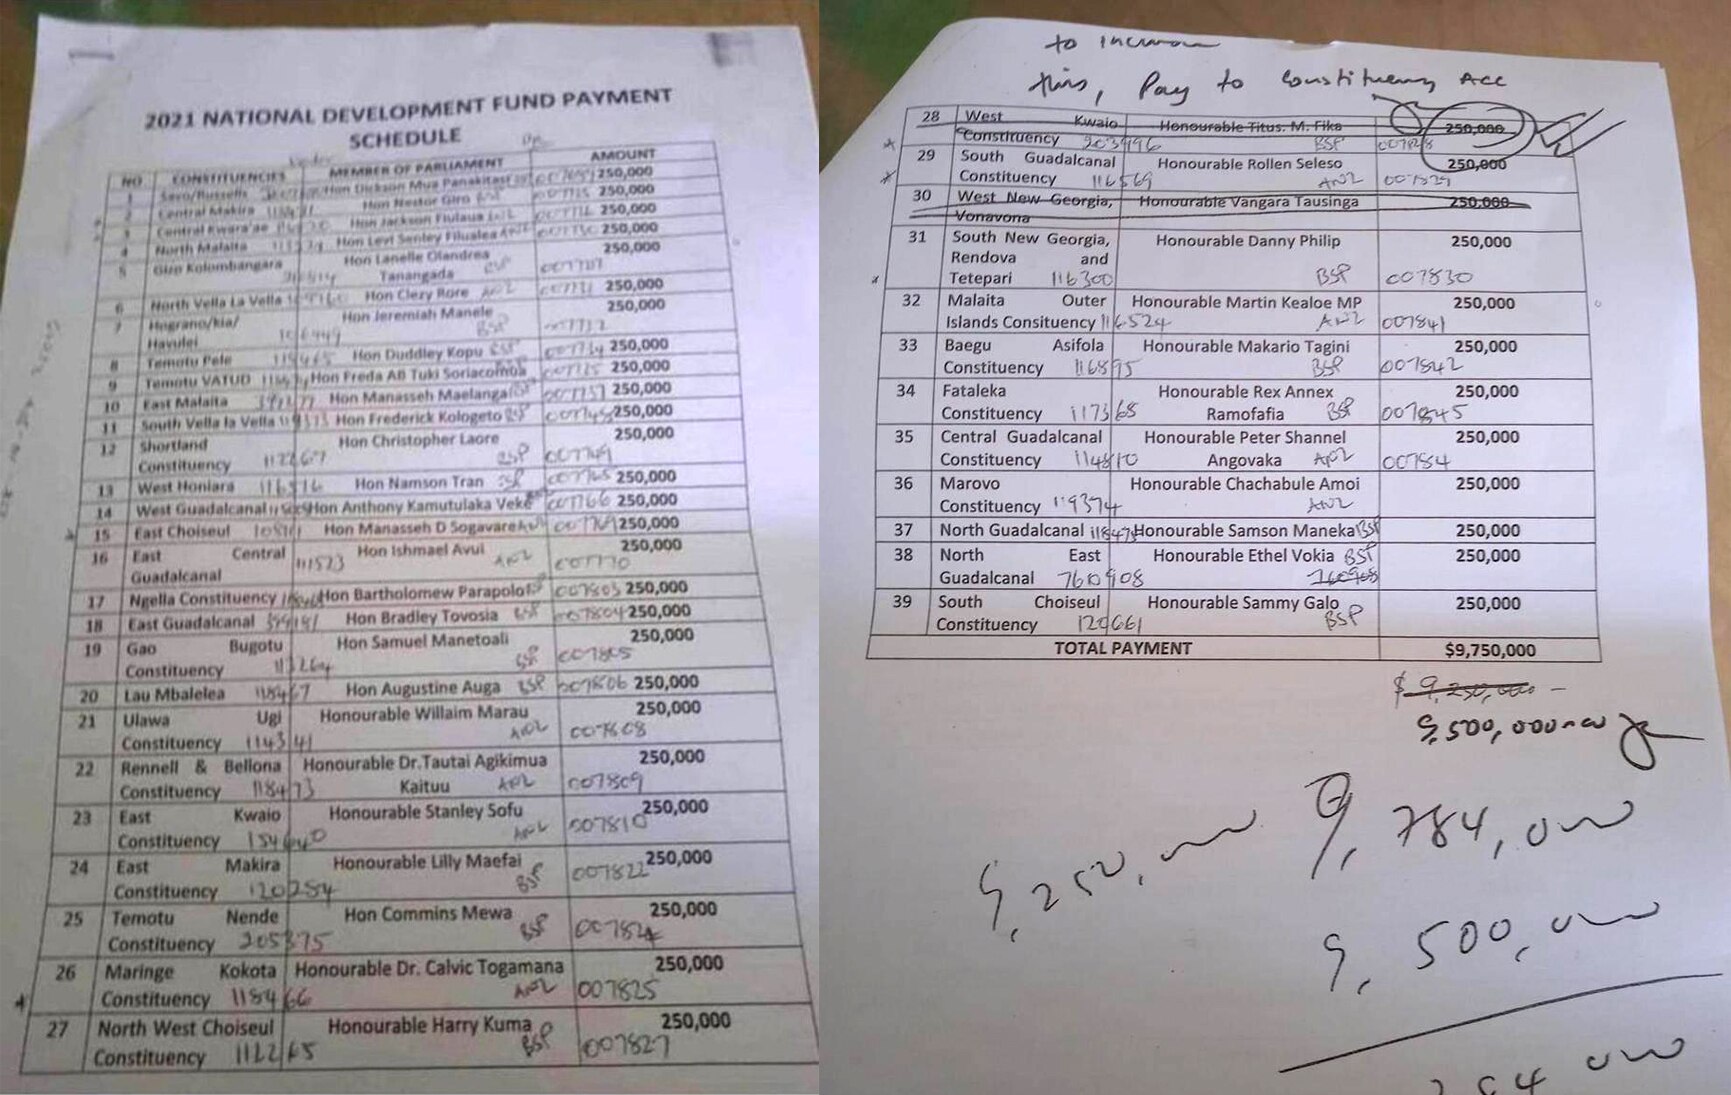 2021 NATIONAL DEVELOPMENT FUND PAYMENT
SCHEDULE
NO CONSTITUENCIES MEMBER OF PARLIAMENT AMOUNT
1 Savo/Russells Hon Dickson Mua Panakitasi 250,000
2 Central Makira Hon Nestor Giro 250,000
3 Central Kwara'ae Hon Jackson Fiulaua 250,000
4 North Malaita Hon Levi Senley Filualea 250,000
5 Gizo Kolombangara Hon Lanelle Olandrea 250,000
Tanangada BSP 007727
6 North Vella La Vella Hon Clezy Rore ANZ 250,000
7 Hograno/kia/ Hon Jeremiah Manele 250,000
Havulei BSP
8 Temotu Pele Hon Duddley Kopu BSP 250,000
9 Temotu VATUD Hon Freda AB Tuki Soriacomua 250,000
10 East Malaita Hon Manasseh Maelanga 250,000
11 South Vella la Vella Hon Frederick Kologeto BSP 250,000
12 Shortland Hon Christopher Laore 250,000
Constituency 112267 BSP 007749
13 West Honiara 116516 Hon Namson Tran BSP 007765 250,000
14 West Guadalcanal Hon Anthony Kamutulaka Veke 007766 250,000
15 East Choiseul Hon Manasseh D Sogavare ANZ 007769 250,000
16 East Central Hon Ishmael Avui 250,000
Guadalcanal 111523 ANZ 007770
17 Ngella Constituency Hon Bartholomew Parapolo 007803 250,000
18 East Guadalcanal 399191 Hon Bradley Tovosia BSP 007804 250,000
19 Gao Bugotu Hon Samuel Manetoali 250,000
Constituency 113264 BSP 007805
20 Lau Mbalelea 118467 Hon Augustine Auga BSP 007806 250,000
21 Ulawa Ugi Honourable Willaim Marau 250,000
Constituency 114341 ANZ 007808
22 Rennell & Bellona Honourable Dr.Tautai Agikimua 250,000
Constituency 118473 Kaituu ANZ 007809
23 East Kwaio Honourable Stanley Sofu 250,000
Constituency 154640 ANZ 007810
24 East Makira Honourable Lilly Maefai 250,000
Constituency 120284 BSP 007822
25 Temotu Nende Hon Commins Mewa 250,000
Constituency 205375 BSP 007824
26 Maringe Kokota Honourable Dr. Calvic Togamana 250,000
Constituency 118466 ANZ 007825
27 North West Choiseul Honourable Harry Kuma 250,000
Constituency 112265 BSP 007827
to increase
this, Pay to Constituency Acc
28 West Kwaio Honourable Titus. M. Fika 250,000
Constituency 203996 BSP 007828
29 South Guadalcanal Honourable Rollen Seleso 250,000
Constituency 116569 ANZ 007829
30 West New Georgia, Honourable Vangara Tausinga 250,000
Vonavona
31 South New Georgia, Honourable Danny Philip 250,000
Rendova and
Tetepari 116300 BSP 007830
32 Malaita Outer Honourable Martin Kealoe MP 250,000
Islands Consituency 116524 ANZ 007841
33 Baegu Asifola Honourable Makario Tagini 250,000
Constituency 116895 BSP 007842
34 Fataleka Honourable Rex Annex 250,000
Constituency 117365 Ramofafia BSP 007845
35 Central Guadalcanal Honourable Peter Shannel 250,000
Constituency 114810 Angovaka ANZ 00784
36 Marovo Honourable Chachabule Amoi 250,000
Constituency 119374 ANZ
37 North Guadalcanal 118478 Honourable Samson Maneka BSP 250,000
38 North East Honourable Ethel Vokia BSP 250,000
Guadalcanal 760908 760908
39 South Choiseul Honourable Sammy Galo 250,000
Constituency 120661 BSP
TOTAL PAYMENT $9,750,000
$ 9,250,000 -
9,500,000-00
9,250,000 9,784,000
9,500,000
284 000